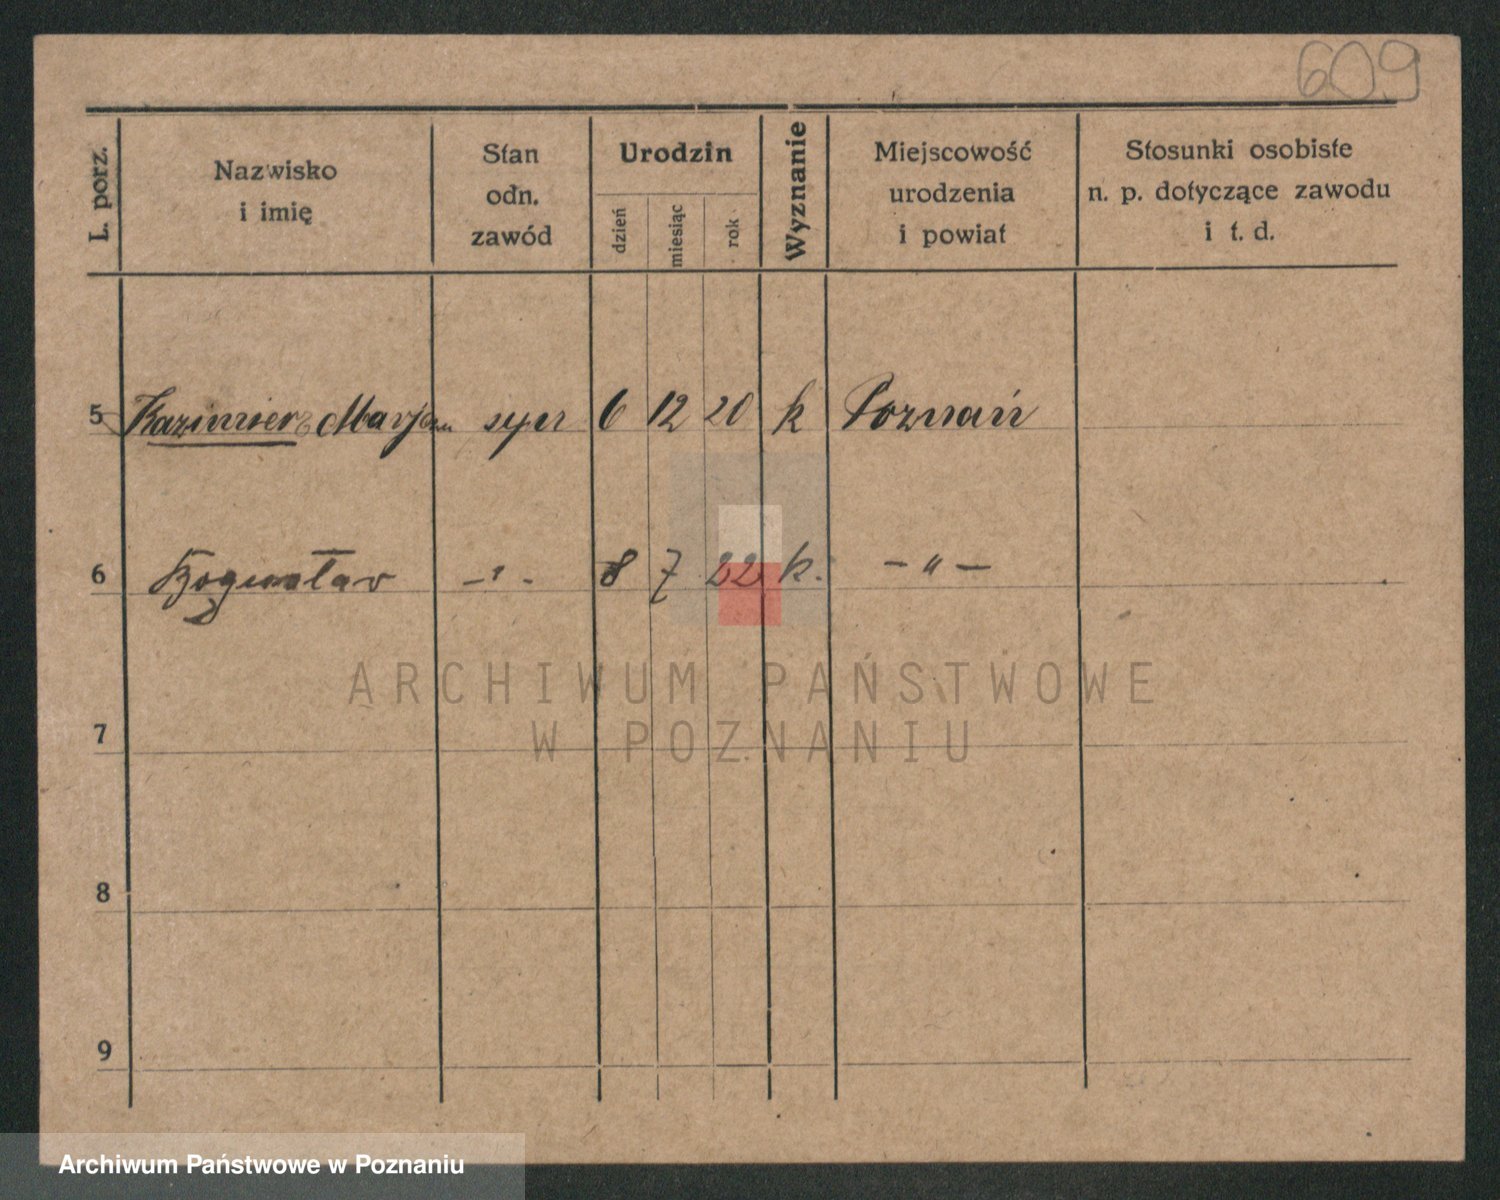 609
L. porz.
Nazwisko
i imię
Stan
odn.
zawód
Urodzin
dzień
miesiąc
rok
Wyznanie
Miejscowość
urodzenia
i powiat
Stosunki osobiste
n. p. dotyczące zawodu
i t. d.
5 Kazimierz Marjan syn 6 12 20 k Poznań
6 Bogusław -"- 8 7 22 k. -"-
7
8
9
ARCHIWUM PAŃSTWOWE
W POZNANIU
Archiwum Państwowe w Poznaniu